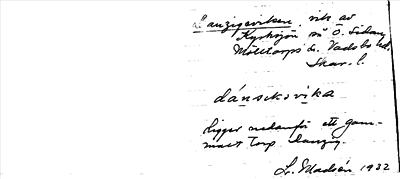 Danzigeviken, vik av
Kyrksjön på Ö. sidan,
Mölltorps s. Vadsbo hd.
Skar. l.
dánseksvika
ligger nedanför ett gam-
malt torp Danzig.
L. Madsén 1932